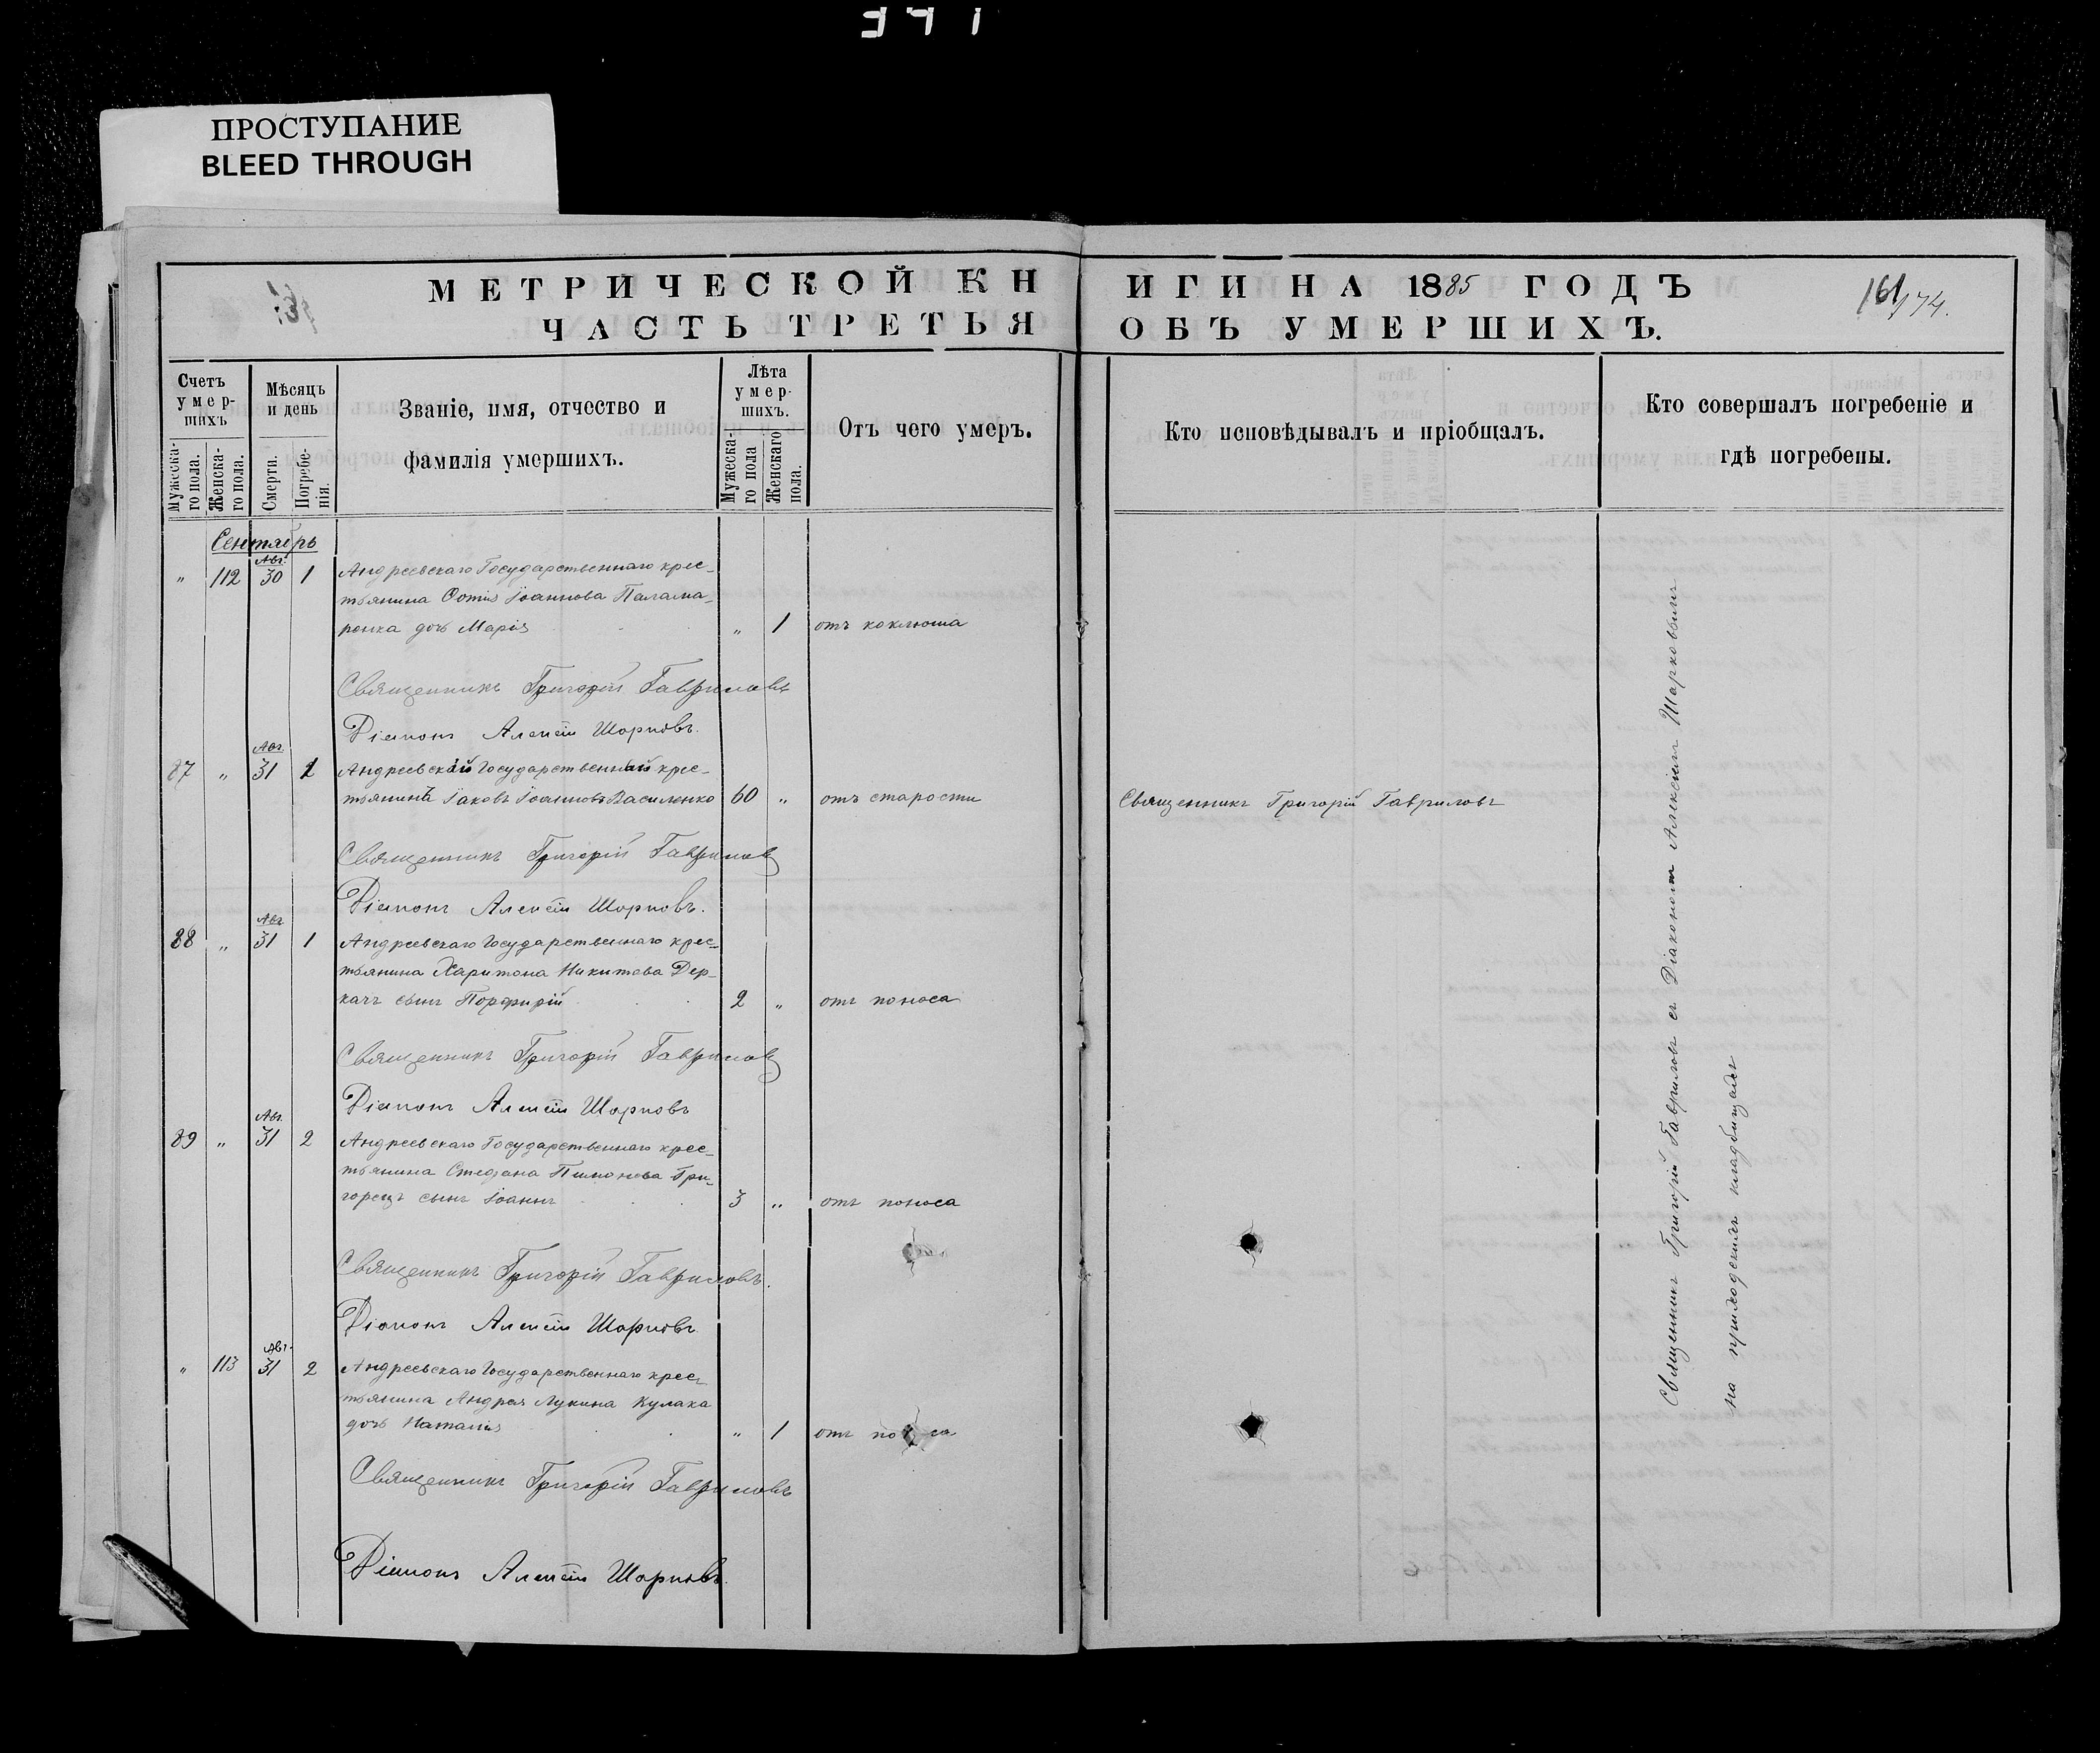 ПРОСТУПАНИЕ
BLEED THROUGH
МЕТРИЧЕСКОЙ КНИГИ НА 1885 ГОДЪ
161/174.
ЧАСТЬ ТРЕТЬЯ ОБЪ УМЕРШИХЪ.
Счетъ умер-шихъ
Мужеска-го пола.
Женска-го пола.
Мѣсяцъ и день
Смерти.
Погребе-нія.
Званіе, имя, отчество и
фамилія умершихъ.
Лѣта умер-шихъ.
Мужеска-го пола
Женскаго пола.
Отъ чего умеръ.
Кто исповѣдывалъ и пріобщалъ.
Кто совершалъ погребеніе и
гдѣ погребены.
Сентябрь
Авг.
" 112 30 1 Андреевскаго Государственнаго крес-
тьянина Ѳомы Іоаннова Палама-
ренка дочь Марія " 1 отъ коклюша
Священникъ Григорій Гавриловъ
Діаконъ Алексій Шарковъ.
Авг.
87 " 31 1 Андреевскій Государственный крес-
тьянинъ Іаковъ Іоанновъ Василенко 60 " отъ старости Священникъ Григорій Гавриловъ
Священникъ Григорій Гавриловъ
Діаконъ Алексій Шарковъ.
Авг.
88 " 31 1 Андреевскаго Государственнаго крес-
тьянина Харитона Никитова Дер-
качъ сынъ Порфирій 2 " отъ поноса
Священникъ Григорій Гавриловъ
Діаконъ Алексій Шарковъ
Авг.
89 " 31 2 Андреевскаго Государственнаго крес-
тьянина Стефана Пимонова Гри-
горецъ сынъ Іоаннъ 3 " отъ поноса
Священникъ Григорій Гавриловъ.
Діаконъ Алексій Шарковъ
Авг.
" 113 31 2 Андреевскаго Государственнаго крес-
тьянина Андрея Лукина Кулака
дочь Наталія " 1 отъ поноса
Священникъ Григорій Гавриловъ
Діаконъ Алексій Шарковъ.
Священникъ Григорій Гавриловъ съ Діакономъ Алексіемъ Шарковымъ
на приходскихъ кладбищахъ